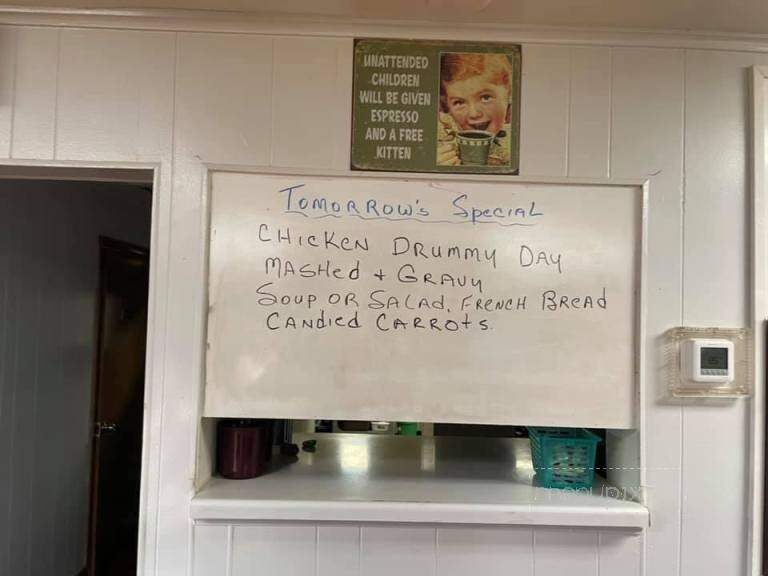 UNATTENDED
CHILDREN
WILL BE GIVEN
ESPRESSO
AND A FREE
KITTEN
TOMORROW'S SPECIAL
CHICKEN DRUMMY DAY
MASHED + GRAVY
SOUP OR SALAD, FRENCH BREAD
CANDIED CARROTS.
menupix